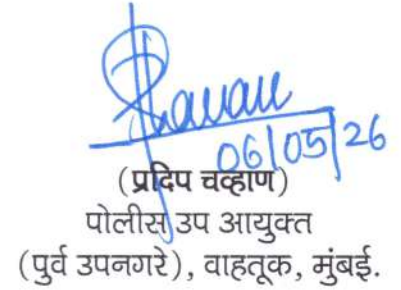 Chavan
06/05/26
(प्रदिप चव्हाण)
पोलीस उप आयुक्त
(पुर्व उपनगरे), वाहतूक, मुंबई.